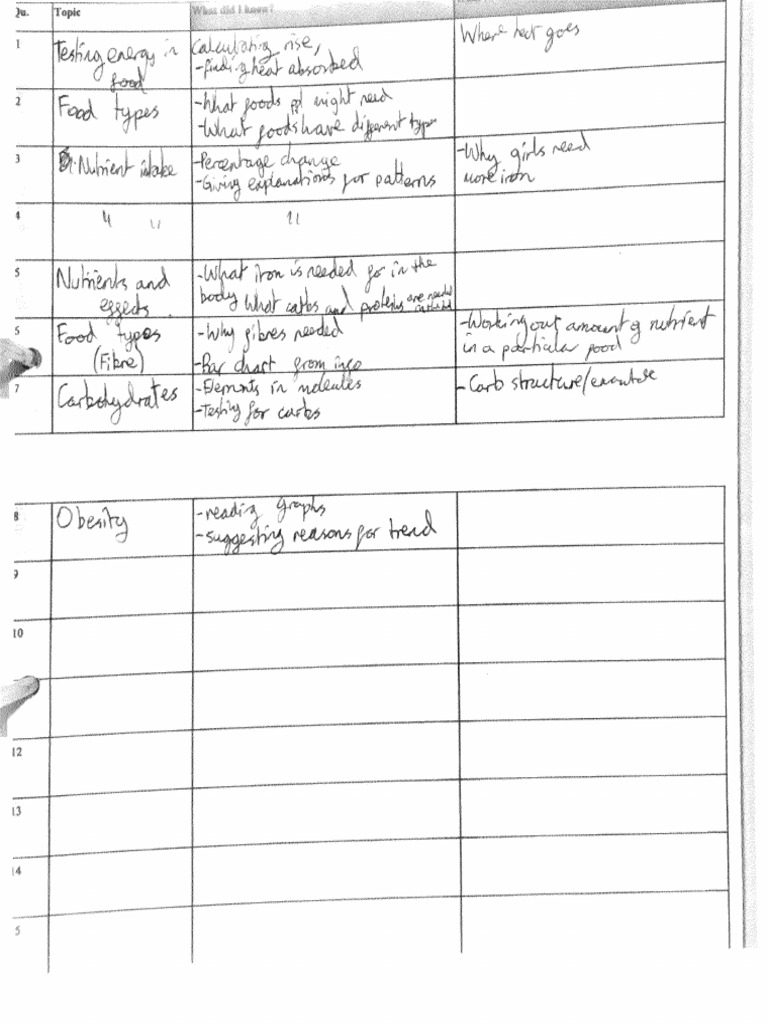 Qu. Topic What did I know?
1 Testing energy in food
Calculating rise,
-finding heat absorbed
Where heat goes
2 Food types
-What foods ppl might need
-What foods have different types
3 Nutrient intake
-Percentage change
-Giving explanations for patterns
-Why girls need
more iron
4 " " "
5 Nutrients and
effects.
-What iron is needed for in the
body What carbs and proteins are needed
6 Food types
(Fibre)
-Why fibres needed
-Bar chart from info
-Working out amount of nutrient
in a particular food
7 Carbohydrates
-Elements in molecules
-Testing for carbs
-Carb structure/
8 Obesity
-reading graphs
-suggesting reasons for trend
9
10
12
13
14
5